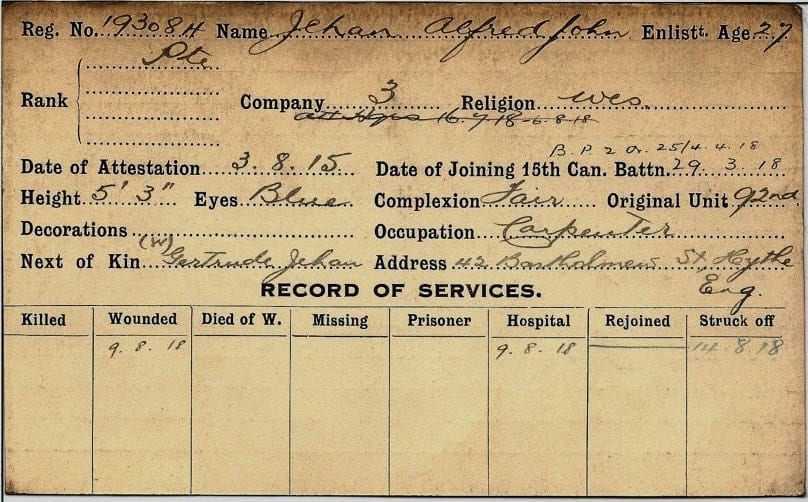 Reg. No. 193084 Name Jehan Alfred John Enlistt. Age 27
Pte
Rank Company 3 Religion Wes.
att Hqrs 16.7.18-6.8.18
B.P.2 Or. 25/4.4.18
Date of Attestation 3.8.15 Date of Joining 15th Can. Battn. 29.3.18
Height 5' 3" Eyes Blue Complexion Fair Original Unit 92nd
Decorations Occupation Carpenter
(W)
Next of Kin Gertrude Jehan Address 42 Bartholmew St, Hythe
Eng.
RECORD OF SERVICES.
Killed Wounded Died of W. Missing Prisoner Hospital Rejoined Struck off
9.8.18 9.8.18 14.8.18